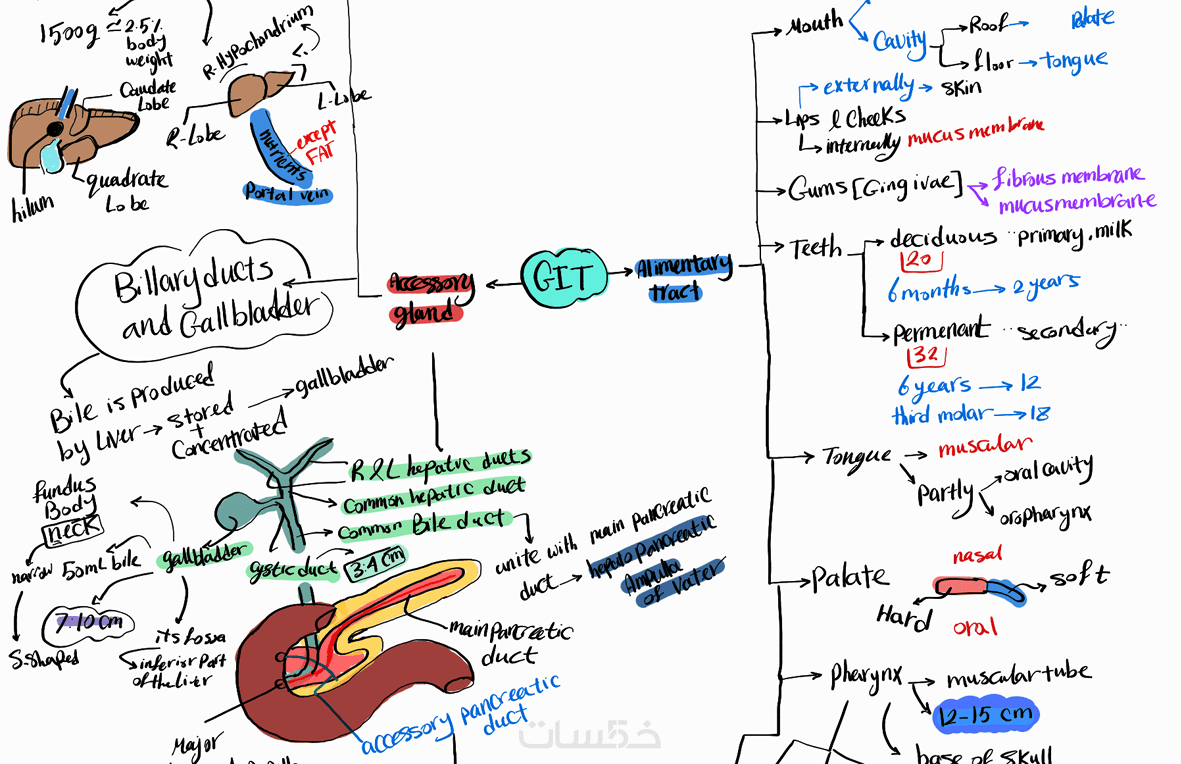 1500g ≈ 2.5%
body
weight
R-Hypochondrium
L-Lobe
R-Lobe
Caudate
Lobe
quadrate
Lobe
hilum
nutrients
except
FAT
Portal vein
GIT
Accessory
gland
Alimentary
tract
Billary ducts
and Gallbladder
Bile is Produced
by Liver → stored → gallbladder
+
Concentrated
R & L hepatic ducts
Common hepatic duct
Common Bile duct
unite with main pancreatic
duct → hepato pancreatic
Ampulla
of Vater
cystic duct
3.4 cm
gallbladder
fundus
Body
neck
narrow
S-shaped
50mL bile
7-10 cm
its fossa
inferior part
of the liver
main pancreatic
duct
accessory pancreatic
duct
Major
Mouth
Cavity
Roof → Palate
floor → tongue
Lips & Cheeks
externally → skin
internally mucus membrane
Gums [Gingivae]
fibrous membrane
mucus membrane
Teeth
deciduous "primary, milk
20
6 months → 2 years
Permenant "secondary"
32
6 years → 12
third molar → 18
Tongue → muscular
Partly
oral cavity
oropharynx
Palate
nasal
Hard
soft
oral
Pharynx → muscular tube
12-15 cm
base of skull
خمسات